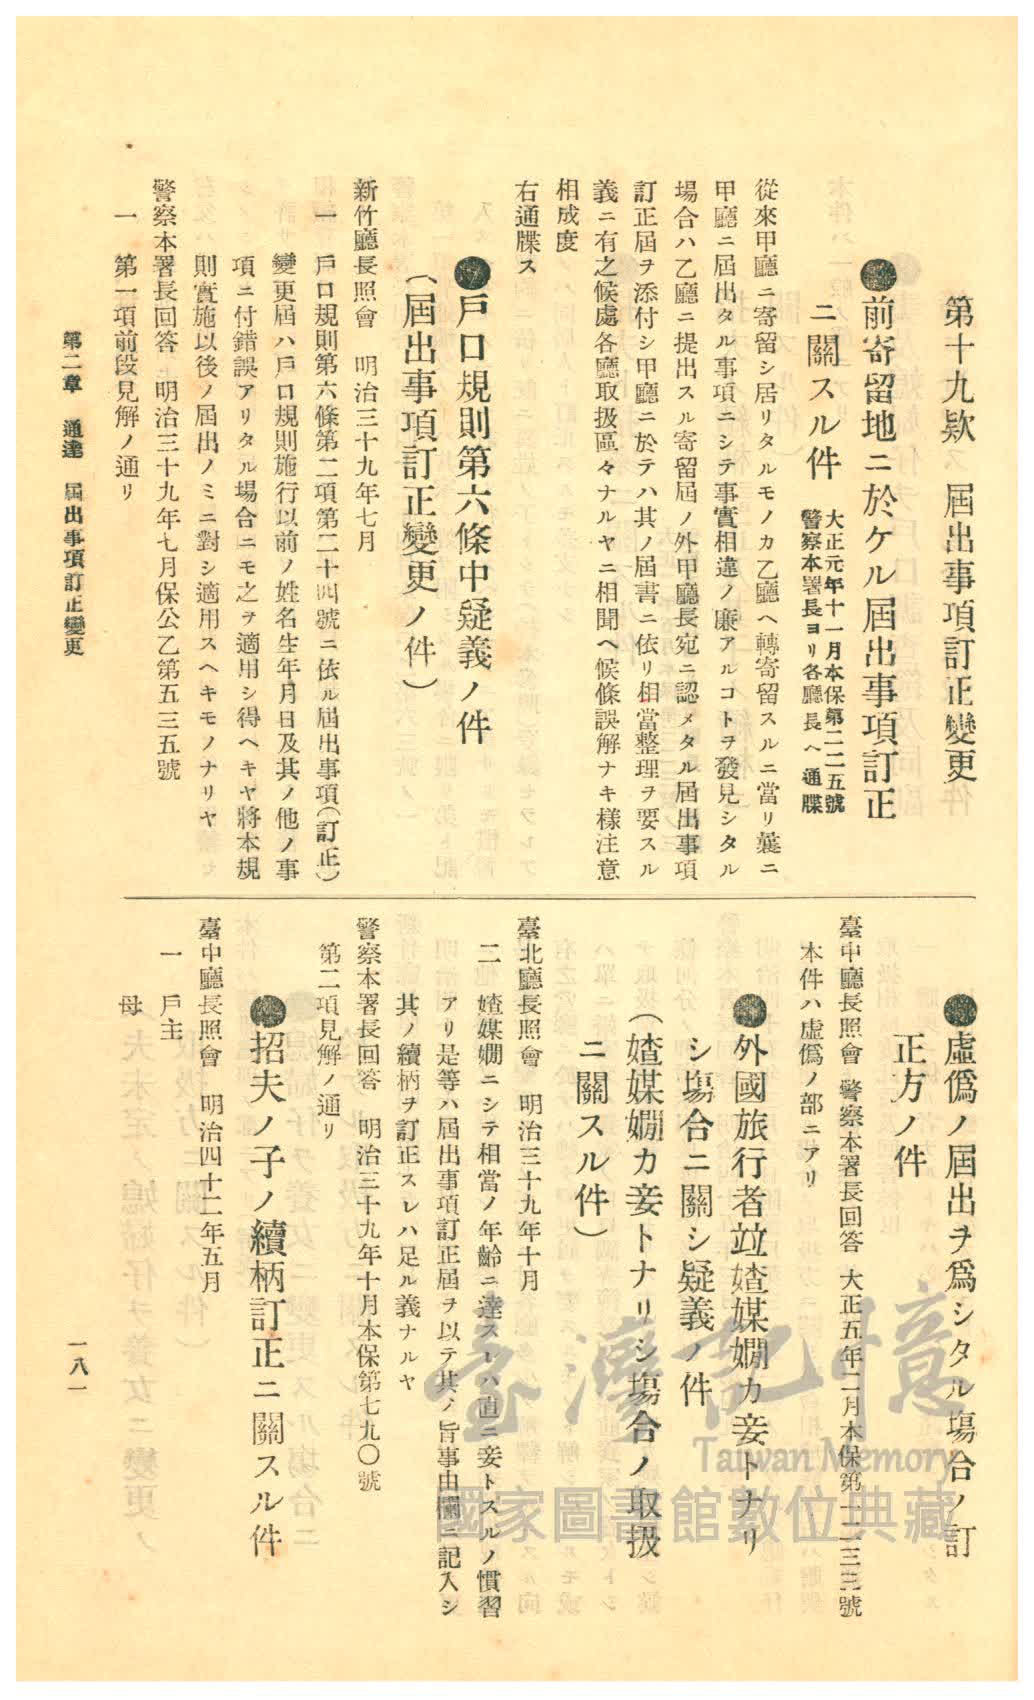 第十九款　屆出事項訂正變更
●前寄留地ニ於ケル屆出事項訂正
ニ關スル件
大正元年十一月本保第二二五號
警察本署長ヨリ各廳長ヘ通牒
從來甲廳ニ寄留シ居リタルモノカ乙廳ヘ轉寄留スルニ當リ曩ニ
甲廳ニ屆出タル事項ニシテ事實相違ノ廉アルコトヲ發見シタル
場合ハ乙廳ニ提出スル寄留屆ノ外甲廳長宛ニ認メタル屆出事項
訂正屆ヲ添付シ甲廳ニ於テハ其ノ屆書ニ依リ相當整理ヲ要スル
義ニ有之候處各廳取扱區々ナルヤニ相聞ヘ候條誤解ナキ樣注意
相成度
右通牒ス
●戶口規則第六條中疑義ノ件
（屆出事項訂正變更ノ件）
新竹廳長照會　明治三十九年七月
一　戶口規則第六條第二項第二十四號ニ依ル屆出事項（訂正）
變更屆ハ戶口規則施行以前ノ姓名生年月日及其ノ他ノ事
項ニ付錯誤アリタル場合ニモ之ヲ適用シ得ヘキヤ將本規
則實施以後ノ屆出ノミニ對シ適用スヘキモノナリヤ
警察本署長回答　明治三十九年七月保公乙第五三五號
一　第一項前段見解ノ通リ
●虛僞ノ屆出ヲ爲シタル場合ノ訂
正方ノ件
臺中廳長照會　警察本署長回答　大正五年二月本保第一二三三號
本件ハ虛僞ノ部ニアリ
●外國旅行者竝媎媒嫺カ妾トナリ
シ塲合ニ關シ疑義ノ件
（媎媒嫺カ妾トナリシ塲合ノ取扱
ニ關スル件）
臺北廳長照會　明治三十九年十月
二　媎媒嫺ニシテ相當ノ年齡ニ達スレハ直ニ妾トスルノ慣習
アリ是等ハ屆出事項訂正屆ヲ以テ其ノ旨事由欄ニ記入シ
其ノ續柄ヲ訂正スレハ足ル義ナルヤ
警察本署長回答　明治三十九年十月本保第七九〇號
第二項見解ノ通リ
●招夫ノ子ノ續柄訂正ニ關スル件
臺中廳長照會　明治四十二年五月
一　戶主
母
第二章　通達　屆出事項訂正變更
一八一
臺灣記憶
Taiwan Memory
國家圖書館數位典藏